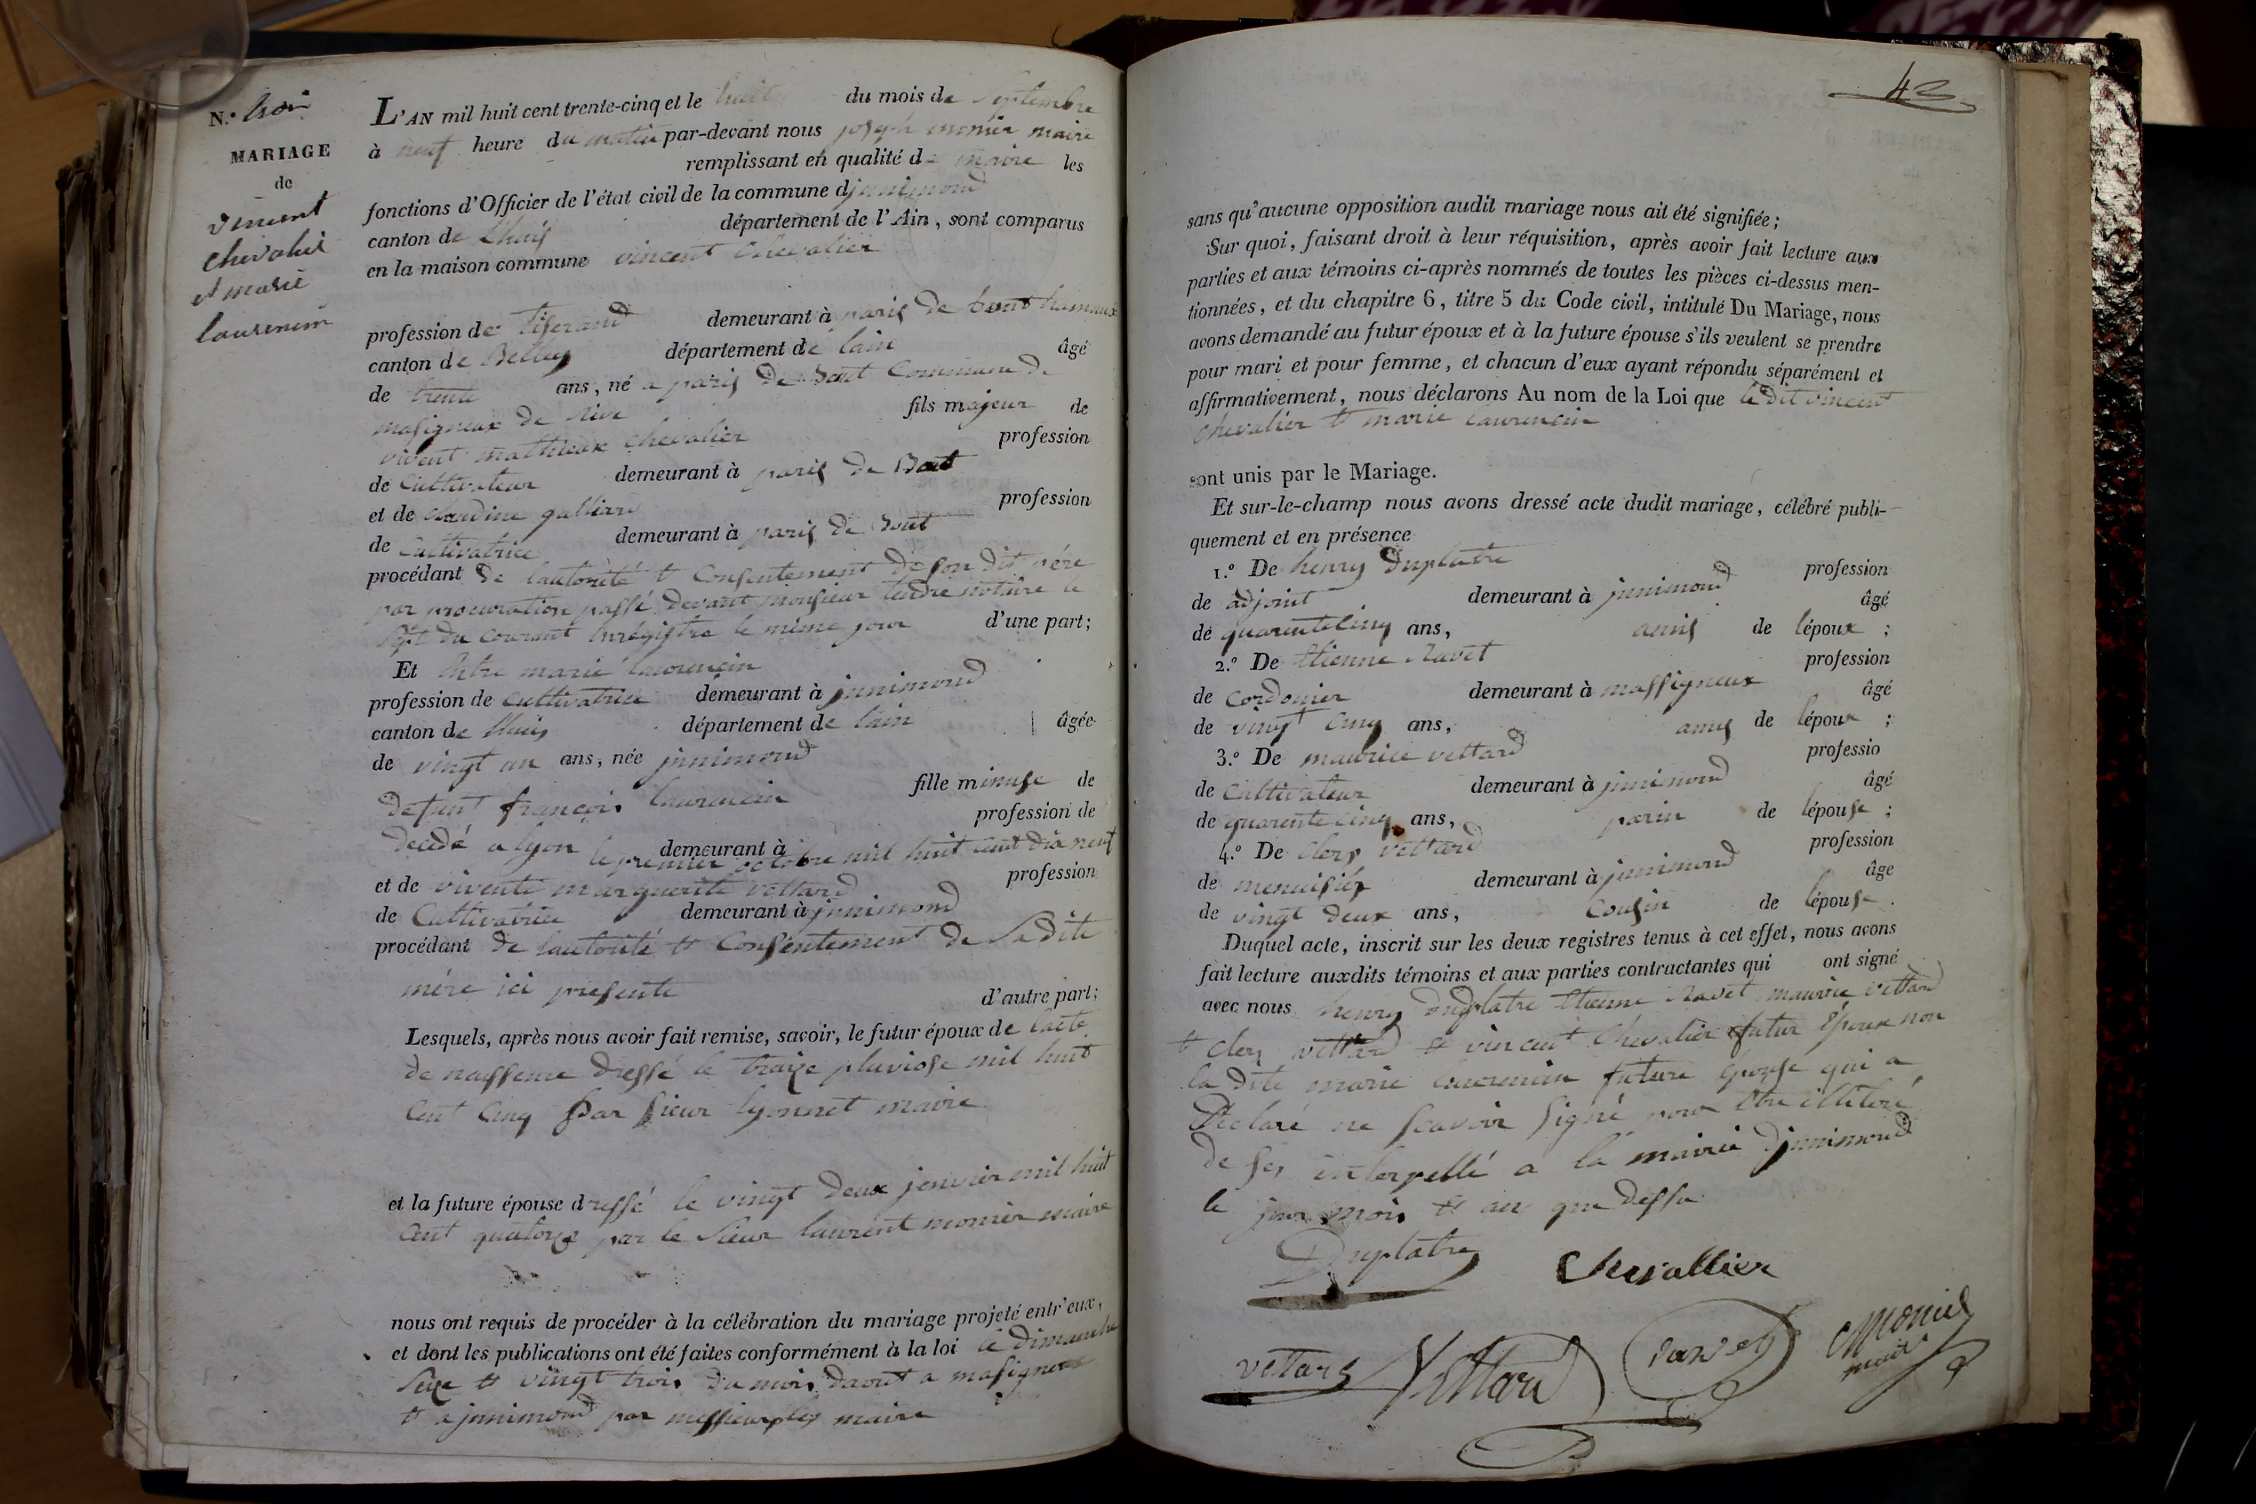 N.o trois
MARIAGE
de
vincent
chevalier
et marie
laurencin
L'AN mil huit cent trente-cinq et le huit du mois de Septembre
à neuf heure du matin par-devant nous joseph monier maire
remplissant en qualité de maire les
fonctions d'Officier de l'état civil de la commune djnnimond
canton de Lhuis département de l'Ain, sont comparus
en la maison commune vincent chevalier
profession de tiserand demeurant à paris de bout hameaux
canton de Belley département de lain âgé
de trente ans, né a paris de bout Commune de
masigneux de rive fils majeur de
vivent mathieux chevalier profession
de Cultivateur demeurant à paris de Bout
et de claudine galliard profession
de Cultivatrice demeurant à paris de bout
procédant de lautorité et Consentement de son dit père
par procuration passé devant monsieur tendre notaire le
sept du courant enregistre le même jour d'une part;
Et entre marie laurencin
profession de cultivatrice demeurant à jnnimond
canton de lhuis département de lain âgée
de vingt un ans, née jnnimond
fille mineuse de
defunt françois laurencin profession de
decedé a lyon demeurant à
le premier octobre mil huit cent dix neuf
et de vivente marguerite vettard profession
de Cultivatrice demeurant à jnnimond
procédant de lautorité et Consentement de Sa dite
mère ici presente d'autre part;
Lesquels, après nous avoir fait remise, savoir, le futur époux de lacte
de naissence dressé le traize pluviose mil huit
Cent Cinq par sieur lyonnet maire
et la future épouse dressé le vingt deux jenvier mil huit
Cent quatorze par le Sieur laurent monier maire
nous ont requis de procéder à la célébration du mariage projeté entr'eux,
et dont les publications ont été faites conformément à la loi le dimanche
Seize et vingt trois du mois daout a masigneux
et a jnnimond par messieurs les maire
43
sans qu'aucune opposition audit mariage nous ait été signifiée;
Sur quoi, faisant droit à leur réquisition, après avoir fait lecture aux
parties et aux témoins ci-après nommés de toutes les pièces ci-dessus men-
tionnées, et du chapitre 6, titre 5 du Code civil, intitulé Du Mariage, nous
avons demandé au futur époux et à la future épouse s'ils veulent se prendre
pour mari et pour femme, et chacun d'eux ayant répondu séparément et
affirmativement, nous déclarons Au nom de la Loi que le dit vincent
chevalier et marie laurencin
sont unis par le Mariage.
Et sur-le-champ nous avons dressé acte dudit mariage, célébré publi-
quement et en présence
1.o De henry Duplatre profession
de adjoint demeurant à jnnimond âgé
de quarente Cinq ans, amis de lépoux ;
2.o De Etienne Ravet profession
de Cordonier demeurant à massigneux âgé
de vingt Cinq ans, amis de lépoux ;
3.o De maurice vettard professio
de Cultivateur demeurant à jnnimond âgé
de quarente Cinq ans, parin de lépouse ;
4.o De Clers vettard profession
de menuisier demeurant à jnnimond âge
de vingt deux ans, Cousin de lépouse .
Duquel acte, inscrit sur les deux registres tenus à cet effet, nous avons
fait lecture auxdits témoins et aux parties contractantes qui ont signé
avec nous henry duplatre Etienne Ravet maurice vettard
et Clers vettard et vincent Chevalier futur Epoux non
la dite marie laurencin future Epouse qui a
Déclaré ne scavoir signé pour être illetteré
de ses interpellé a la mairie djnnimond
le jour mois et an que dessu
Duplatre
Chevallier
vettard
Vettard
ravet
Monier
maire